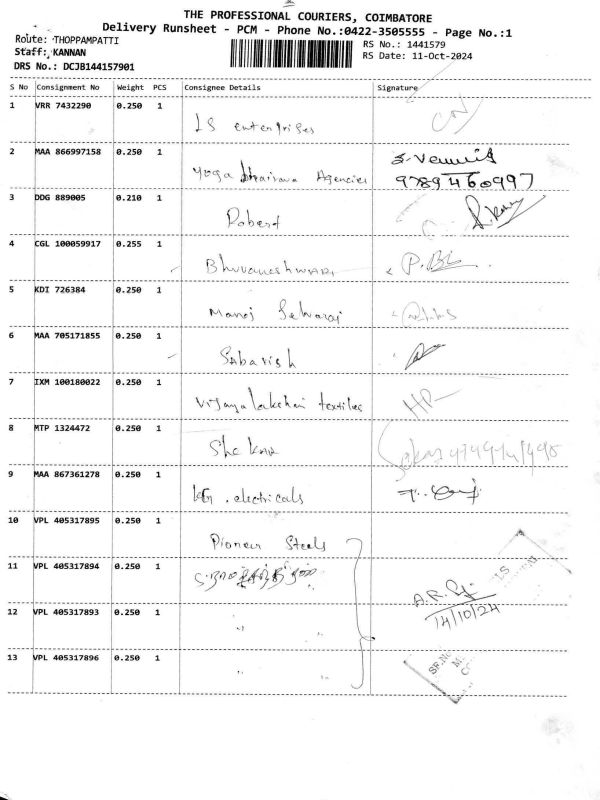 THE PROFESSIONAL COURIERS, COIMBATORE
Delivery Runsheet - PCM - Phone No.:0422-3505555 - Page No.:1
Route: THOPPAMPATTI
Staff: KANNAN
DRS No.: DCJB144157901
RS No.: 1441579
RS Date: 11-Oct-2024
S No Consignment No Weight PCS Consignee Details Signature
1 VRR 7432290 0.250 1
LS enterprises
2 MAA 866997158 0.250 1
yoga bhairava Agencies
9789460997
3 DDG 889005 0.210 1
Robert
4 CGL 100059917 0.255 1
Bhuvaneshwari P.
5 KDI 726384 0.250 1
Manoj Selvaraj
6 MAA 705171855 0.250 1
Sabarish
7 IXM 100180022 0.250 1
Vijayalakshmi textiles HP
8 MTP 1324472 0.250 1
Shekar
9 MAA 867361278 0.250 1
KG. electricals
10 VPL 405317895 0.250 1
Pioneer Steels
11 VPL 405317894 0.250 1
A.R.
14/10/24
12 VPL 405317893 0.250 1
" "
13 VPL 405317896 0.250 1
" "